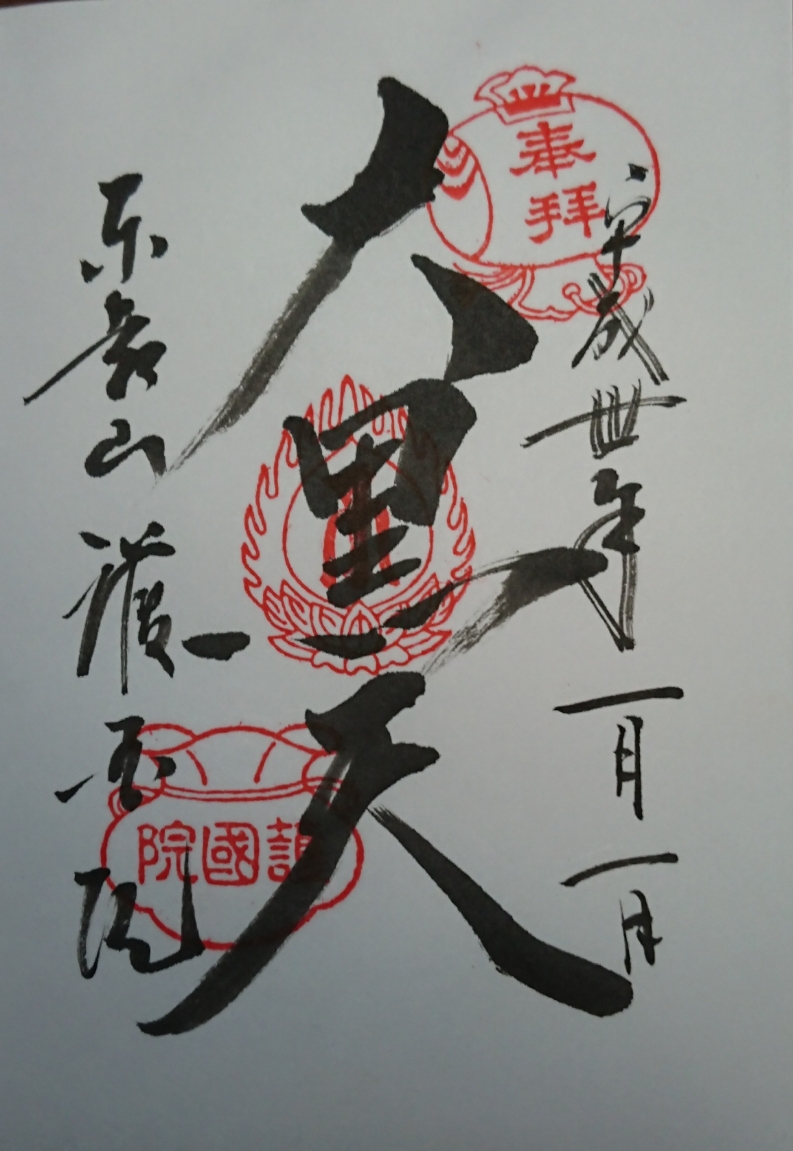 奉拝
平成丗年一月一日
大黒天
東叡山護国院
護國院